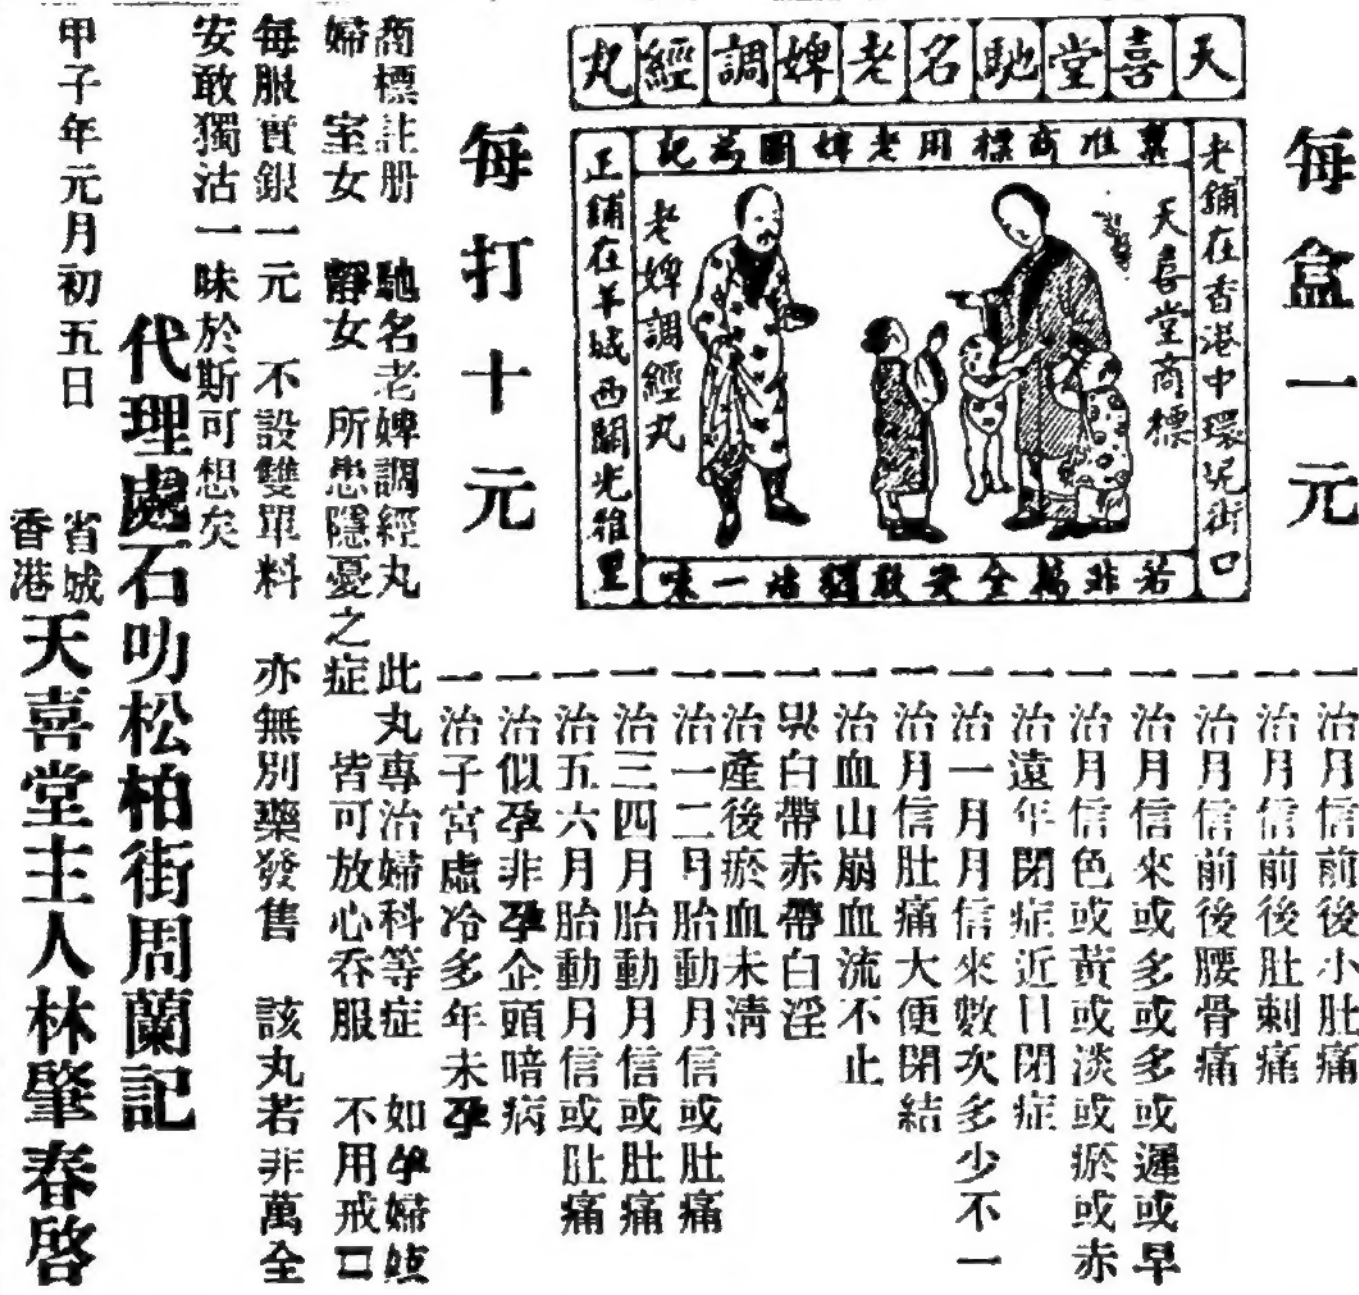 天喜堂馳名老婢調經丸
每盒一元
稟准商標用老婢圖為記
老鋪在香港中環坭街口
天喜堂商標
老婢調經丸
正鋪在羊城西關光雅里
若非萬全安敢獨沽一味
每打十元
一治月信前後小肚痛
一治月信前後肚刺痛
一治月信前後腰骨痛
一治月信來或多或多或遲或早
一治月信色或黃或淡或瘀或赤
一治遠年閉症近日閉症
一治一月月信來數次多少不一
一治月信肚痛大便閉結
一治血山崩血流不止
一患白帶赤帶白淫
一治產後瘀血未清
一治一二月胎動月信或肚痛
一治三四月胎動月信或肚痛
一治五六月胎動月信或肚痛
一治似孕非孕企頭暗病
一治子宮虛冷多年未孕
商標註册 馳名老婢調經丸 此丸專治婦科等症 如孕婦
婦 室女 靜女 所患隱憂之症 皆可放心吞服 不用戒口
每服實銀一元 不設雙單料 亦無別藥發售 該丸若非萬全
安敢獨沽一味於斯可想矣
代理處石叻松柏街周蘭記
甲子年元月初五日
省城
香港
天喜堂主人林肇春啓